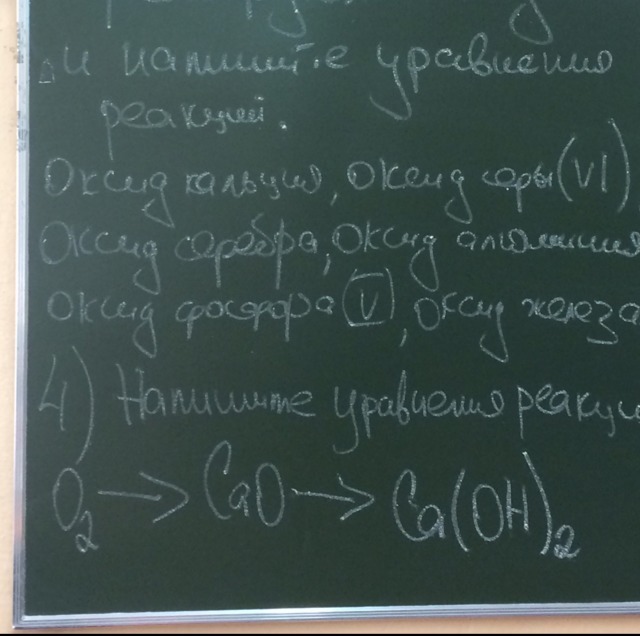 и напишите уравнения
реакций.
Оксид кальция, оксид серы (VI)
Оксид серебра, Оксид алюминия
Оксид фосфора (V), оксид железа
4) Напишите уравнения реакци
O₂ → CaO → Ca(OH)₂